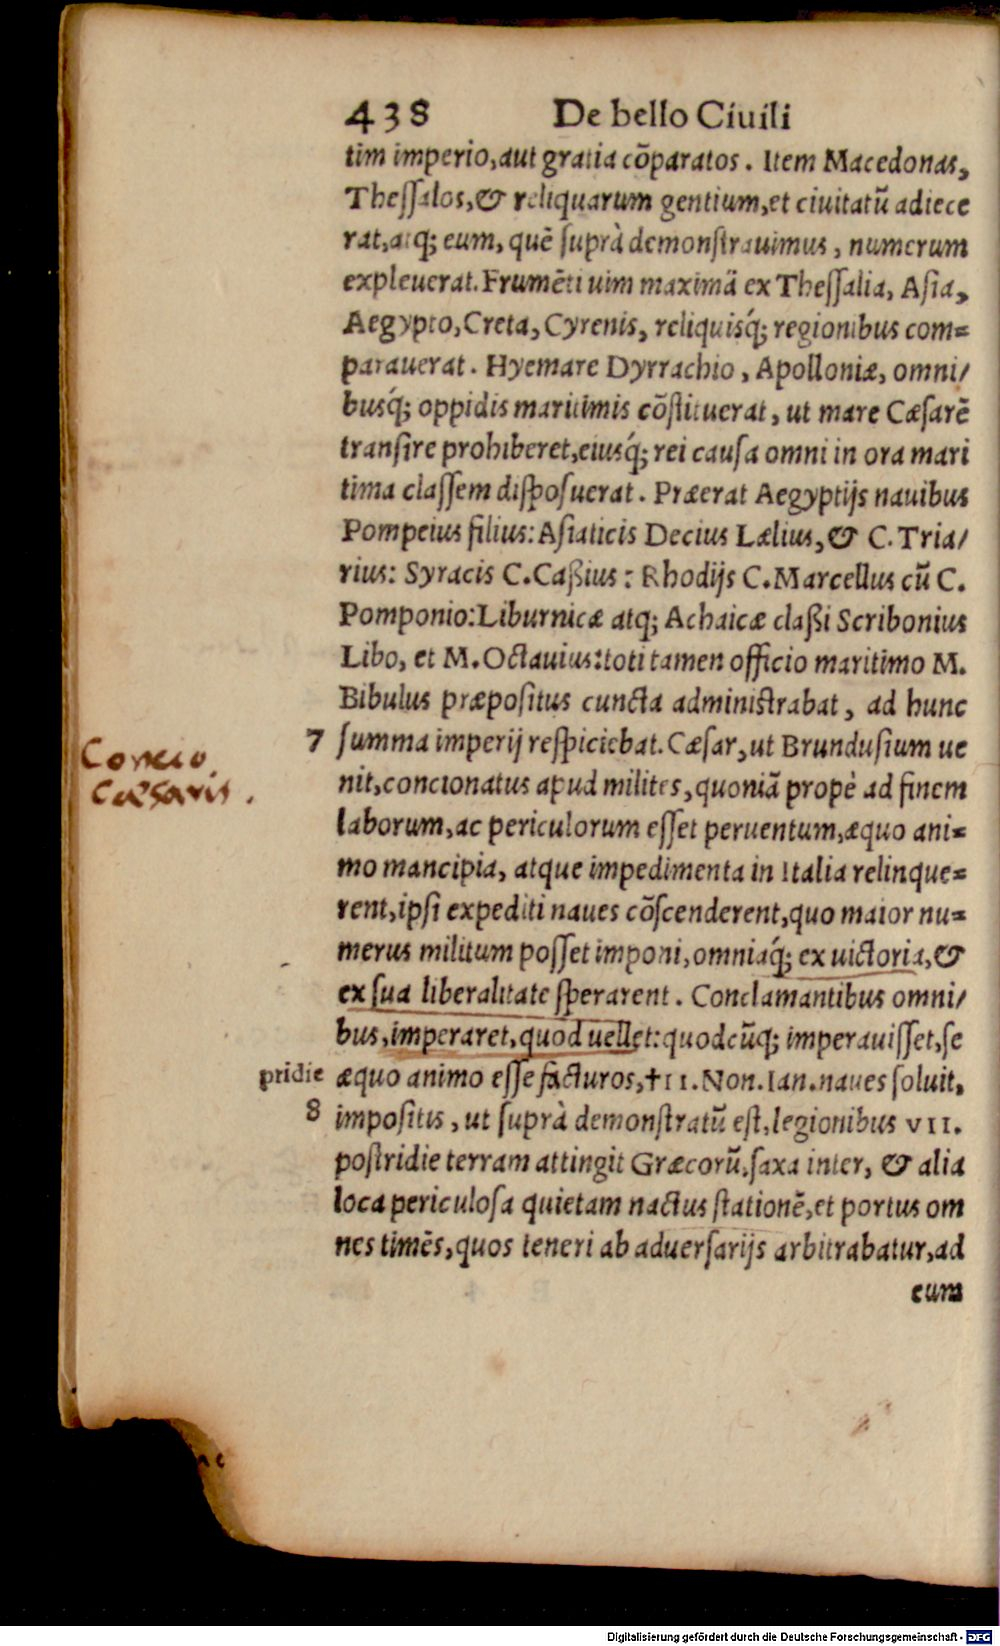 438 De bello Ciuili
tim imperio,aut gratia cõparatos. Item Macedonas,
Thessalos,& reliquarum gentium,et ciuitatũ adiece
rat,atq; eum, quẽ suprà demonstrauimus, numerum
expleuerat. Frumẽti uim maximã ex Thessalia, Asia,
Aegypto, Creta, Cyrenis, reliquisq́; regionibus com=
parauerat. Hyemare Dyrrachio, Apolloniæ, omni/
busq́; oppidis maritimis cõstituerat, ut mare Cæsarẽ
transire prohiberet,eiusq́; rei causa omni in ora mari
tima classem disposuerat. Præerat Aegyptijs nauibus
Pompeius filius: Asiaticis Decius Lælius,& C. Tria/
rius: Syracis C.Caßius: Rhodijs C.Marcellus cũ C.
Pomponio: Liburnicæ atq; Achaicæ claßi Scribonius
Libo, et M.Octauius: toti tamen officio maritimo M.
Bibulus præpositus cuncta administrabat, ad hunc
7 summa imperij respiciebat. Cæsar, ut Brundusium ue
Concio
Cæsaris.
nit,concionatus apud milites, quoniã propè ad finem
laborum,ac periculorum esset peruentum,æquo ani=
mo mancipia, atque impedimenta in Italia relinque=
rent,ipsi expediti naues cõscenderent,quo maior nu=
merus militum posset imponi, omniaq́; ex uictoria,&
ex sua liberalitate sperarent. Conclamantibus omni/
bus, imperaret, quod uellet: quodcũq; imperauisset,se
pridie æquo animo esse facturos,†II. Non. Ian. naues soluit,
8 impositis, ut suprà demonstratũ est, legionibus VII.
postridie terram attingit Græcorũ, saxa inter, & alia
loca periculosa quietam nactus stationẽ,et portus om
nes timẽs, quos teneri ab aduersarijs arbitrabatur, ad
eum
Digitalisierung gefördert durch die Deutsche Forschungsgemeinschaft - DFG